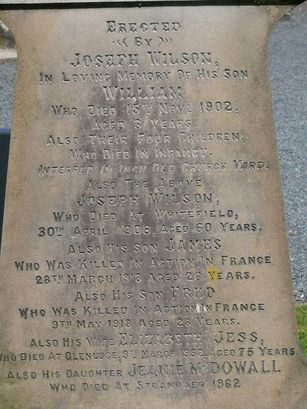 ERECTED
BY
JOSEPH WILSON,
IN LOVING MEMORY OF HIS SON
WILLIAM
WHO DIED 15TH NOVR 1902,
AGED 6 YEARS.
ALSO THEIR FOUR CHILDREN,
WHO DIED IN INFANCY.
INTERRED IN INCH OLD CHURCH YARD.
ALSO THE ABOVE
JOSEPH WILSON,
WHO DIED AT WHITEFIELD,
30TH APRIL 1908, AGED 50 YEARS.
ALSO HIS SON JAMES
WHO WAS KILLED IN ACTION IN FRANCE
28TH MARCH 1918 AGED 28 YEARS.
ALSO HIS SON FRED
WHO WAS KILLED IN ACTION IN FRANCE
9TH MAY 1918 AGED 23 YEARS.
ALSO HIS WIFE ELIZABETH JESS,
WHO DIED AT GLENLUCE, 9TH MARCH 1932, AGED 75 YEARS.
ALSO HIS DAUGHTER JEANIE McDOWALL
WHO DIED AT STRANRAER 1962